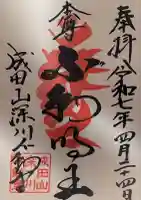 奉拝 令和七年四月二十四日
奉
不動明王
成田山深川不動堂